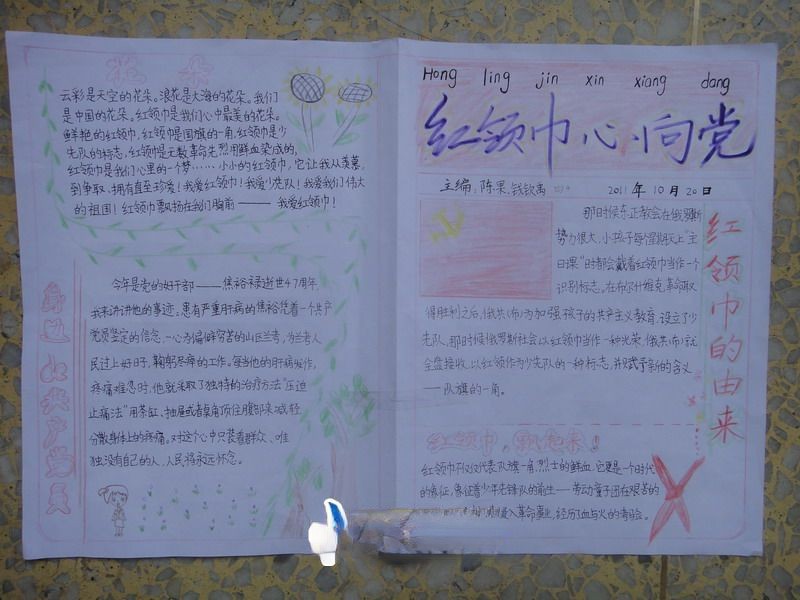 花朵
云彩是天空的花朵。浪花是大海的花朵。我们
是中国的花朵。红领巾是我们心中最美的花朵。
鲜艳的红领巾,红领巾是国旗的一角,红领巾是少
先队的标志,红领巾是无数革命先烈用鲜血染成的,
红领巾是我们心里的一个梦……小小的红领巾,它让我从羡慕,
到争取,拥有直至珍爱!我爱红领巾!我爱少先队!我爱我们伟大
的祖国!红领巾飘扬在我们胸前——我爱红领巾!
身边的共产党员
今年是党的好干部——焦裕禄逝世47周年,
我来讲讲他的事迹。患有严重肝病的焦裕禄凭着一个共产
党员坚定的信念,一心为偏僻穷苦的山区兰考,为兰考人
民过上好日子,鞠躬尽瘁的工作。每当他的肝病发作,
疼痛难忍时,他就采取了独特的治疗方法"压迫
止痛法"用茶缸、抽屉或者桌角顶住腹部来减轻
分散身体上的疼痛。对这个心中只装着群众、唯
独没有自己的人,人民将永远怀念。
Hong ling jin xin xiang dang
红领巾心向党
主编:陈果,钱钦禹
2011年10月20日
红领巾的由来
那时候东正教会在俄罗斯
势力很大,小孩子每个星期天上"主
日课"时都会戴着红领巾当作一个
识别标志。在布尔什维克革命取
得胜利之后,俄共(布)为加强孩子的共产主义教育,设立了少
先队,那时候俄罗斯社会以红领巾当作一种光荣,俄共(布)就
全盘接收,以红领作为少先队的一种标志,并赋予新的含义
——队旗的一角。
红领巾,飘起来!
红领巾不仅仅代表队旗一角,烈士的鲜血,它更是一个时代
的象征,象征着少年先锋队的前生——劳动童子团在艰苦的
投入革命事业,经历了血与火的考验。